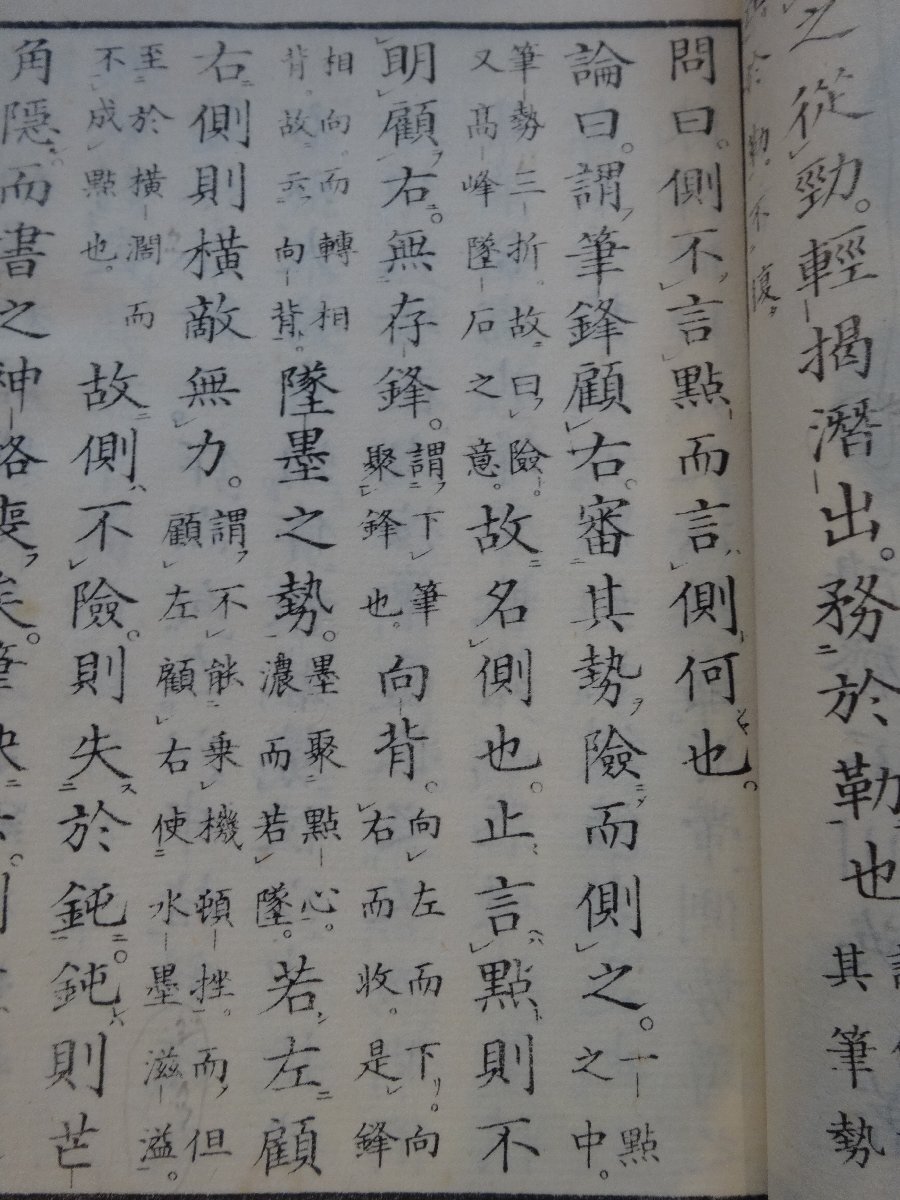 之從勁。輕揭潛出。務於勒也其筆勢
問曰。側不言點而言側何也。
論曰。謂筆鋒顧右。審其勢險而側之。一點之中。
筆勢三折。故曰險。又高峰墜石之意。故名側也。止言點則不
明顧右。無存鋒。謂下筆聚鋒也。向背。向左而下。向右而收。是鋒
相向而轉相背。故云向背。墜墨之勢。墨聚點心。濃而若墜。若左顧
右側則橫敵無力。謂不能乘機頓挫。而但顧左顧右使水墨滋溢。
至於橫濶而不成點也。故側不險。則失於鈍。鈍則芒
角隱。而書之神格喪矣。筆決